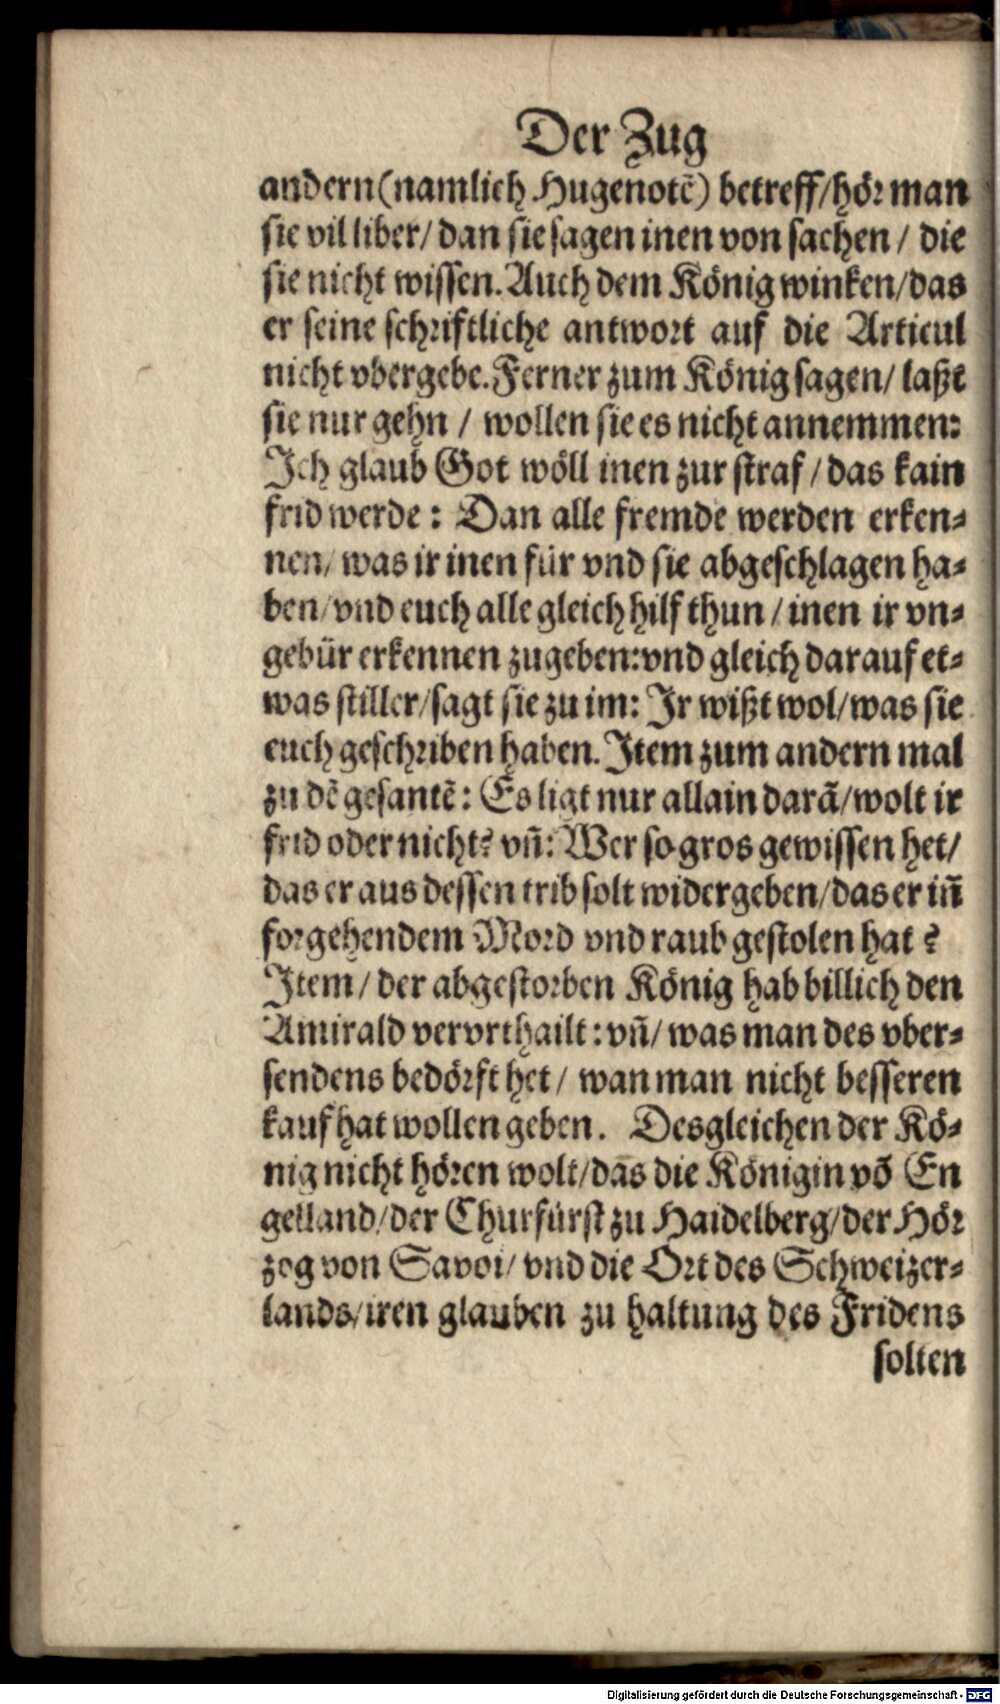 Der Zug
andern (namlich Hugenotẽ) betreff/ hör man
sie vil liber/ dan sie sagen inen von sachen / die
sie nicht wissen. Auch dem König winken/ das
er seine schriftliche antwort auf die Articul
nicht vbergebe. Ferner zum König sagen/ laßt
sie nur gehn / wollen sie es nicht annemmen:
Ich glaub Got wöll inen zur straf / das kain
frid werde : Dan alle fremde werden erken-
nen/ was ir inen für vnd sie abgeschlagen ha-
ben/ vnd euch alle gleich hilf thun / inen ir vn-
gebür erkennen zugeben: vnd gleich darauf et-
was stiller/ sagt sie zu im: Ir wißt wol/ was sie
euch geschriben haben. Item zum andern mal
zu dẽ gesantẽ : Es ligt nur allain darã/ wolt ir
frid oder nicht? vñ: Wer so gros gewissen het/
das er aus dessen trib solt widergeben/ das er iñ
forgehendem Mord vnd raub gestolen hat ?
Item / der abgestorben König hab billich den
Amirald vervrthailt : vñ/ was man des vber-
sendens bedörft het / wan man nicht besseren
kauf hat wollen geben. Desgleichen der Kö-
nig nicht hören wolt/ das die Königin võ En
gelland/ der Churfürst zu Haidelberg/ der Hör
zog von Savoi/ vnd die Ort des Schweizer-
lands/ iren glauben zu haltung des Fridens
solten
Digitalisierung gefördert durch die Deutsche Forschungsgemeinschaft - DFG